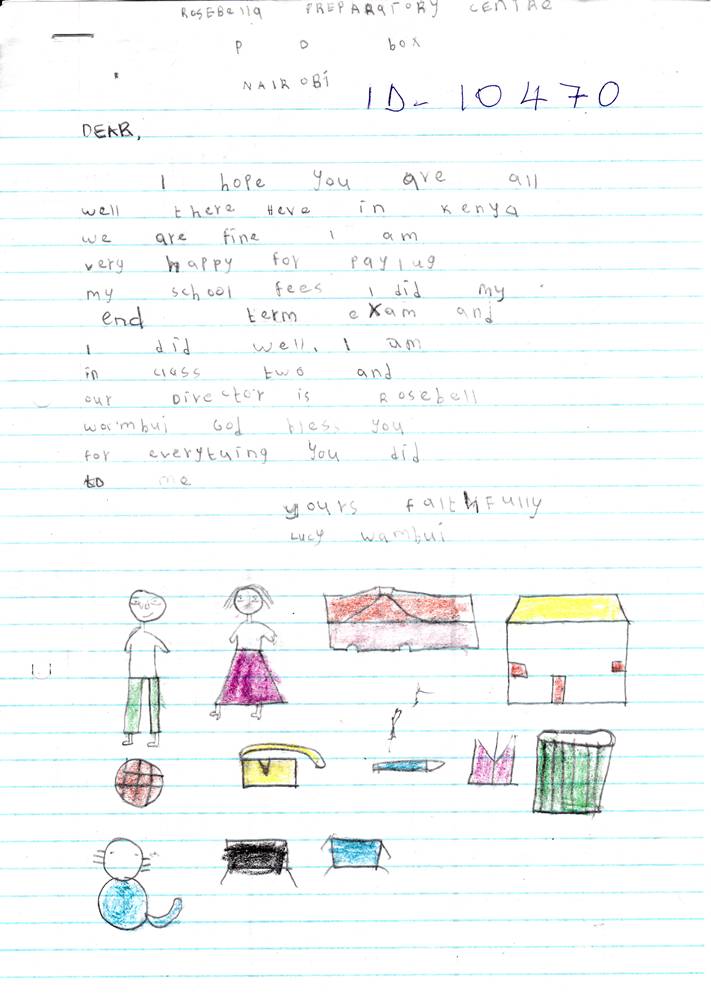 ROSEBElla PREPARATORY CENTRE
P O box
NAIROBi
ID- 10470
DEAR,
I hope you are all
well there Here in Kenya
we are fine I am
very happy for payiug
my school fees I did my
end term exam and
I did well. I am
in class two and
our Director is Rosebell
wambui God bles. you
for everytuing you did
to me
yours faithfully
Lucy wambui